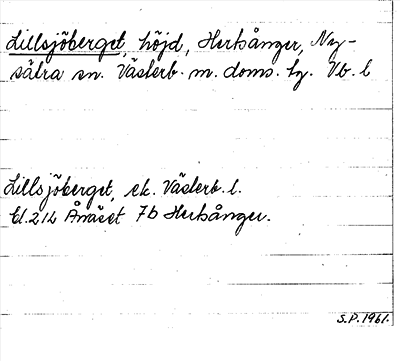 Lillsjöberget, höjd, Herrsånger, Ny-
sätra sn. Västerb. m. doms. hg. Vb. l
Lillsjöberget, ek. Västerb. l.
El. 21L Ånäset 7b Herrsånger.
S.P. 1961.